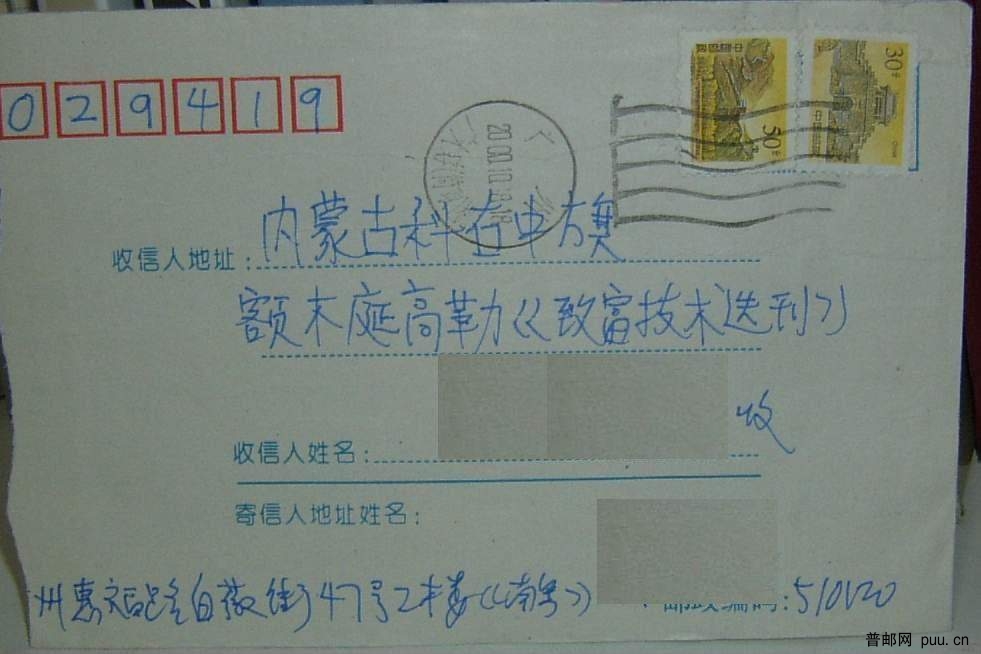 029419
30分
中国邮政
50分
中国邮政
2000.10.18.18
收信人地址：内蒙古科右中旗
额木庭高勒《致富技术选刊》
收
收信人姓名：
寄信人地址姓名：
州惠福路白薇街47号2楼《南粤》
邮政编码：510120
普邮网 puu.cn